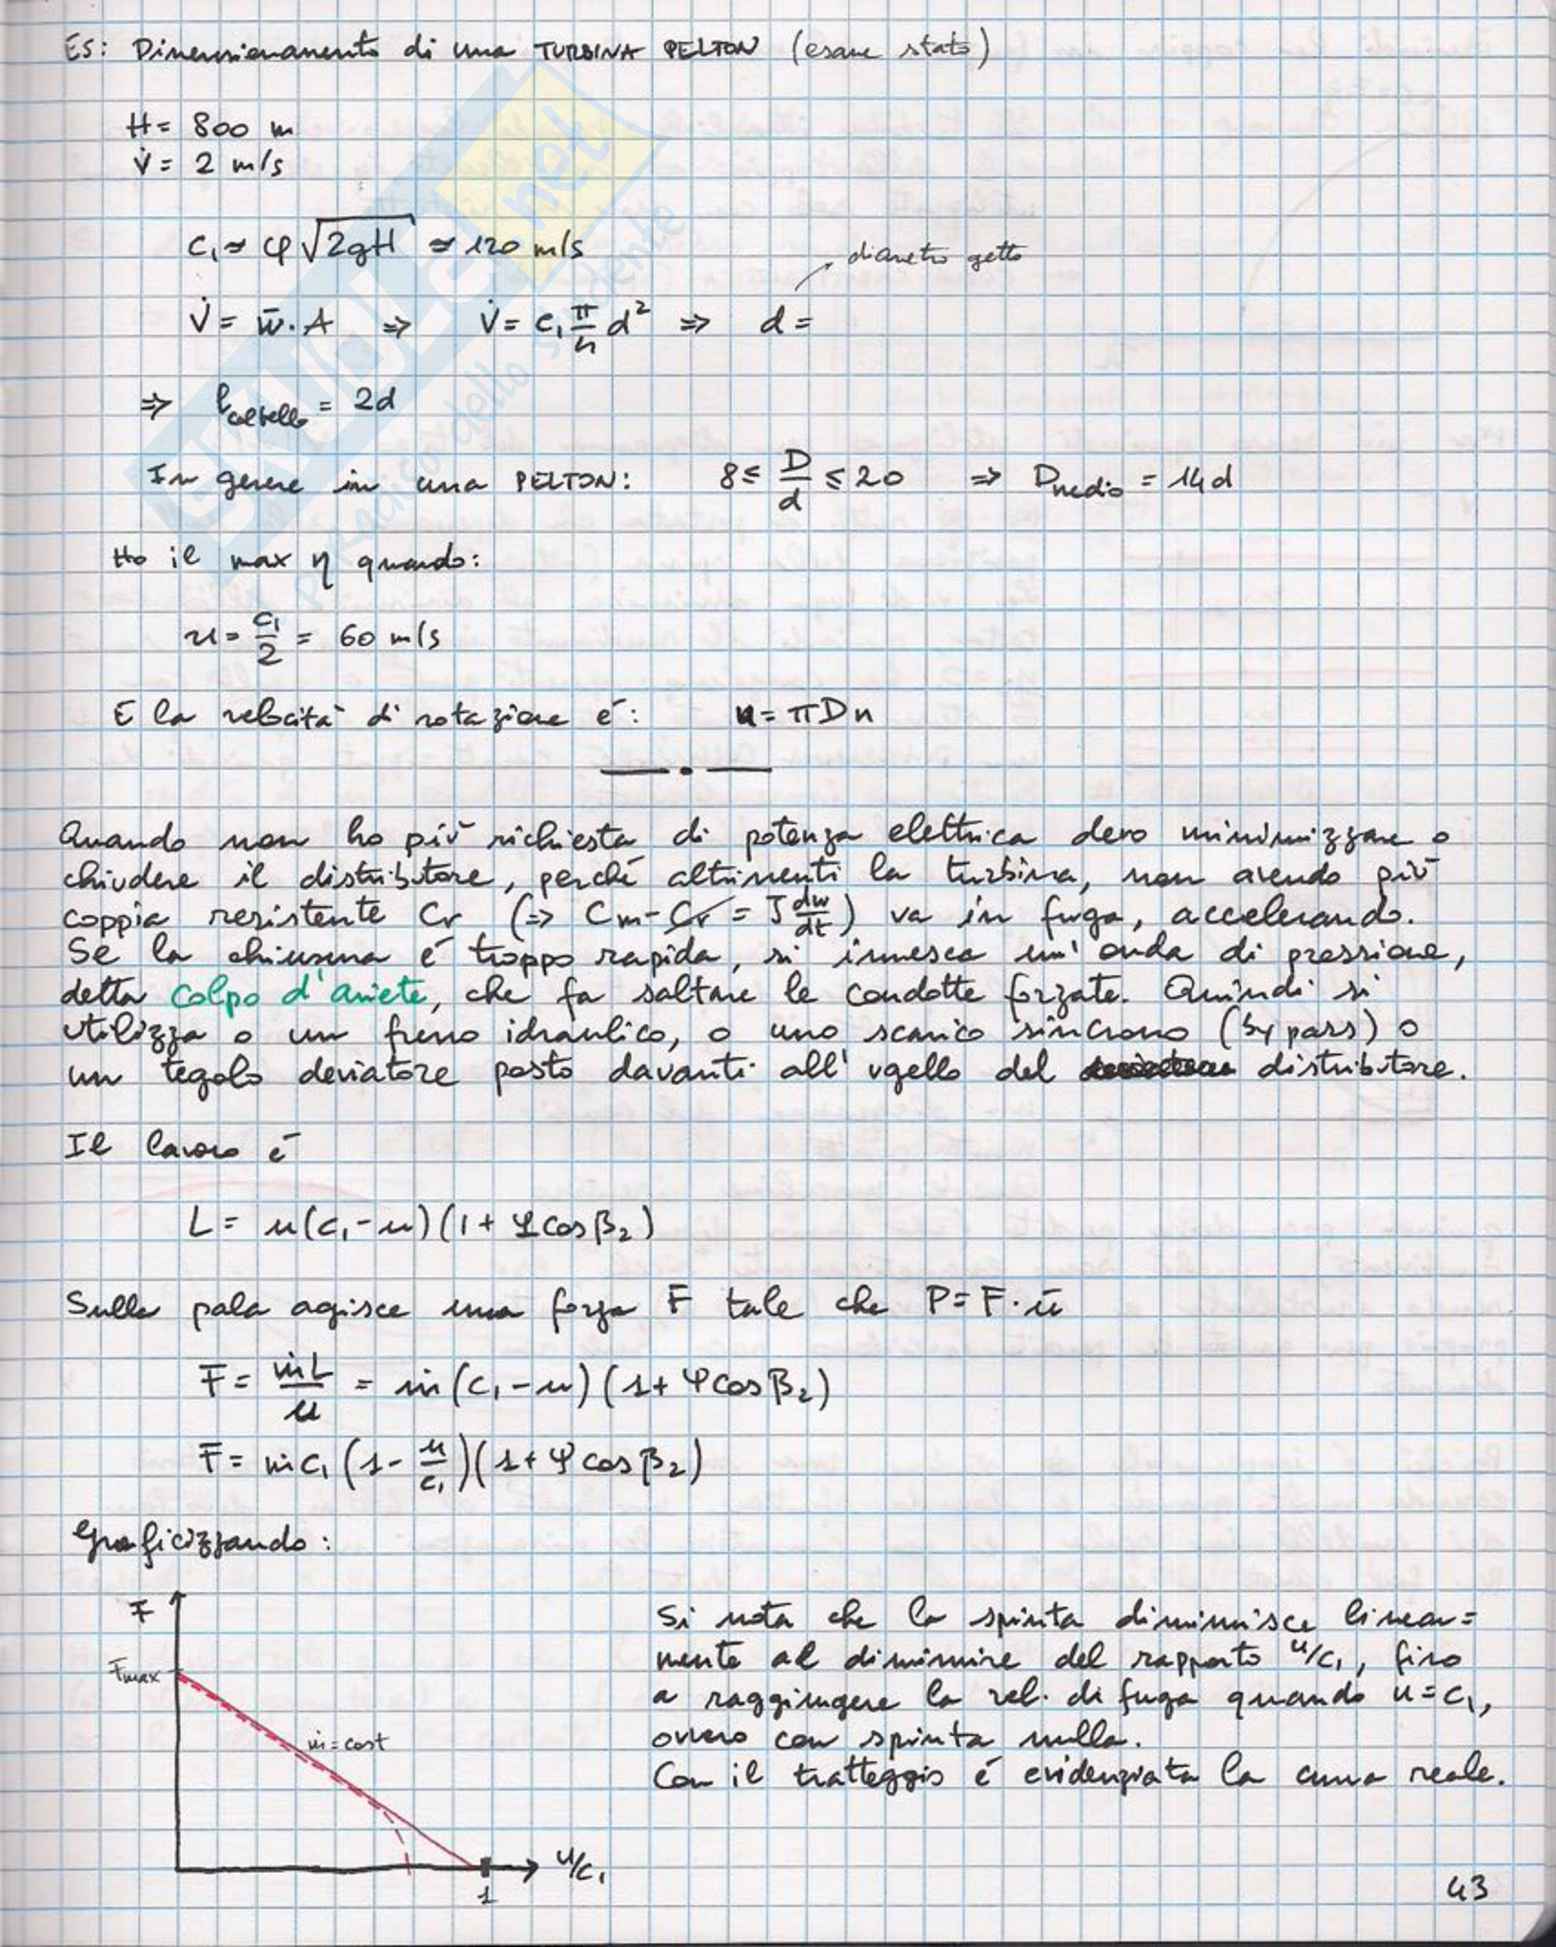 ES: Dimensionamento di una TURBINA PELTON (esame stato)
H = 800 m
V̇ = 2 m/s
c₁ ≈ φ√2gH ≈ 120 m/s
diametro getto
V̇ = w̄·A ⇒ V̇ = c₁ π/4 d² ⇒ d =
⇒ l coltello = 2d
In genere in una PELTON: 8 ≤ D/d ≤ 20 ⇒ Dmedio = 14d
Ho il max η quando:
u = c₁/2 = 60 m/s
E la velocità di rotazione é: u = πDn
Quando non ho più richiesta di potenza elettrica devo minimizzare o
chiudere il distributore, perché altrimenti la turbina, non avendo più
coppia resistente Cr (⇒ Cm - Cr = J dw/dt) va in fuga, accelerando.
Se la chiusura é troppo rapida, si innesca un'onda di pressione,
detta colpo d'ariete, che fa saltare le condotte forzate. Quindi si
utilizza o un freno idraulico, o uno scarico sincrono (by pass) o
un tegolo deviatore posto davanti all'ugello del distributore.
Il lavoro é
L = u(c₁-u)(1+ψcosβ₂)
Sulla pala agisce una forza F tale che P = F·ū
F = ṁL/u = ṁ(c₁-u)(1+ψcosβ₂)
F = ṁc₁(1-u/c₁)(1+ψcosβ₂)
Graficizzando:
F
Fmax
ṁ=cost
u/c₁
1
Si nota che la spinta diminuisce linear=
mente al diminuire del rapporto u/c₁, fino
a raggiungere la vel. di fuga quando u=c₁,
ovvero con spinta nulla.
Con il tratteggio é evidenziata la curva reale.
43